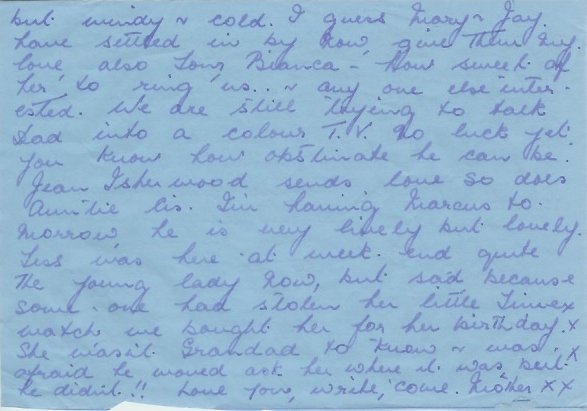 but windy & cold. I guess Mary & Jay.
have settled in by now, give them my
love also Tony Bianca - How sweet of
her to ring us.. & any one else inter-
ested. We are still trying to talk
Dad into a colour T.V. No luck yet
you know how obstinate he can be.
Jean Isherwood sends love so does
Auntie Lis. I'm having Marcus to.
morrow he is very lively but lovely.
Liss was here at week end quite
the young lady now, but sad because
some one had stolen her little Timex
watch we bought her for her birthday. x
She wasn't Grandad to know & was x
afraid he would ask her where it was but
he didn't!! Love you, write, come. Mother x x